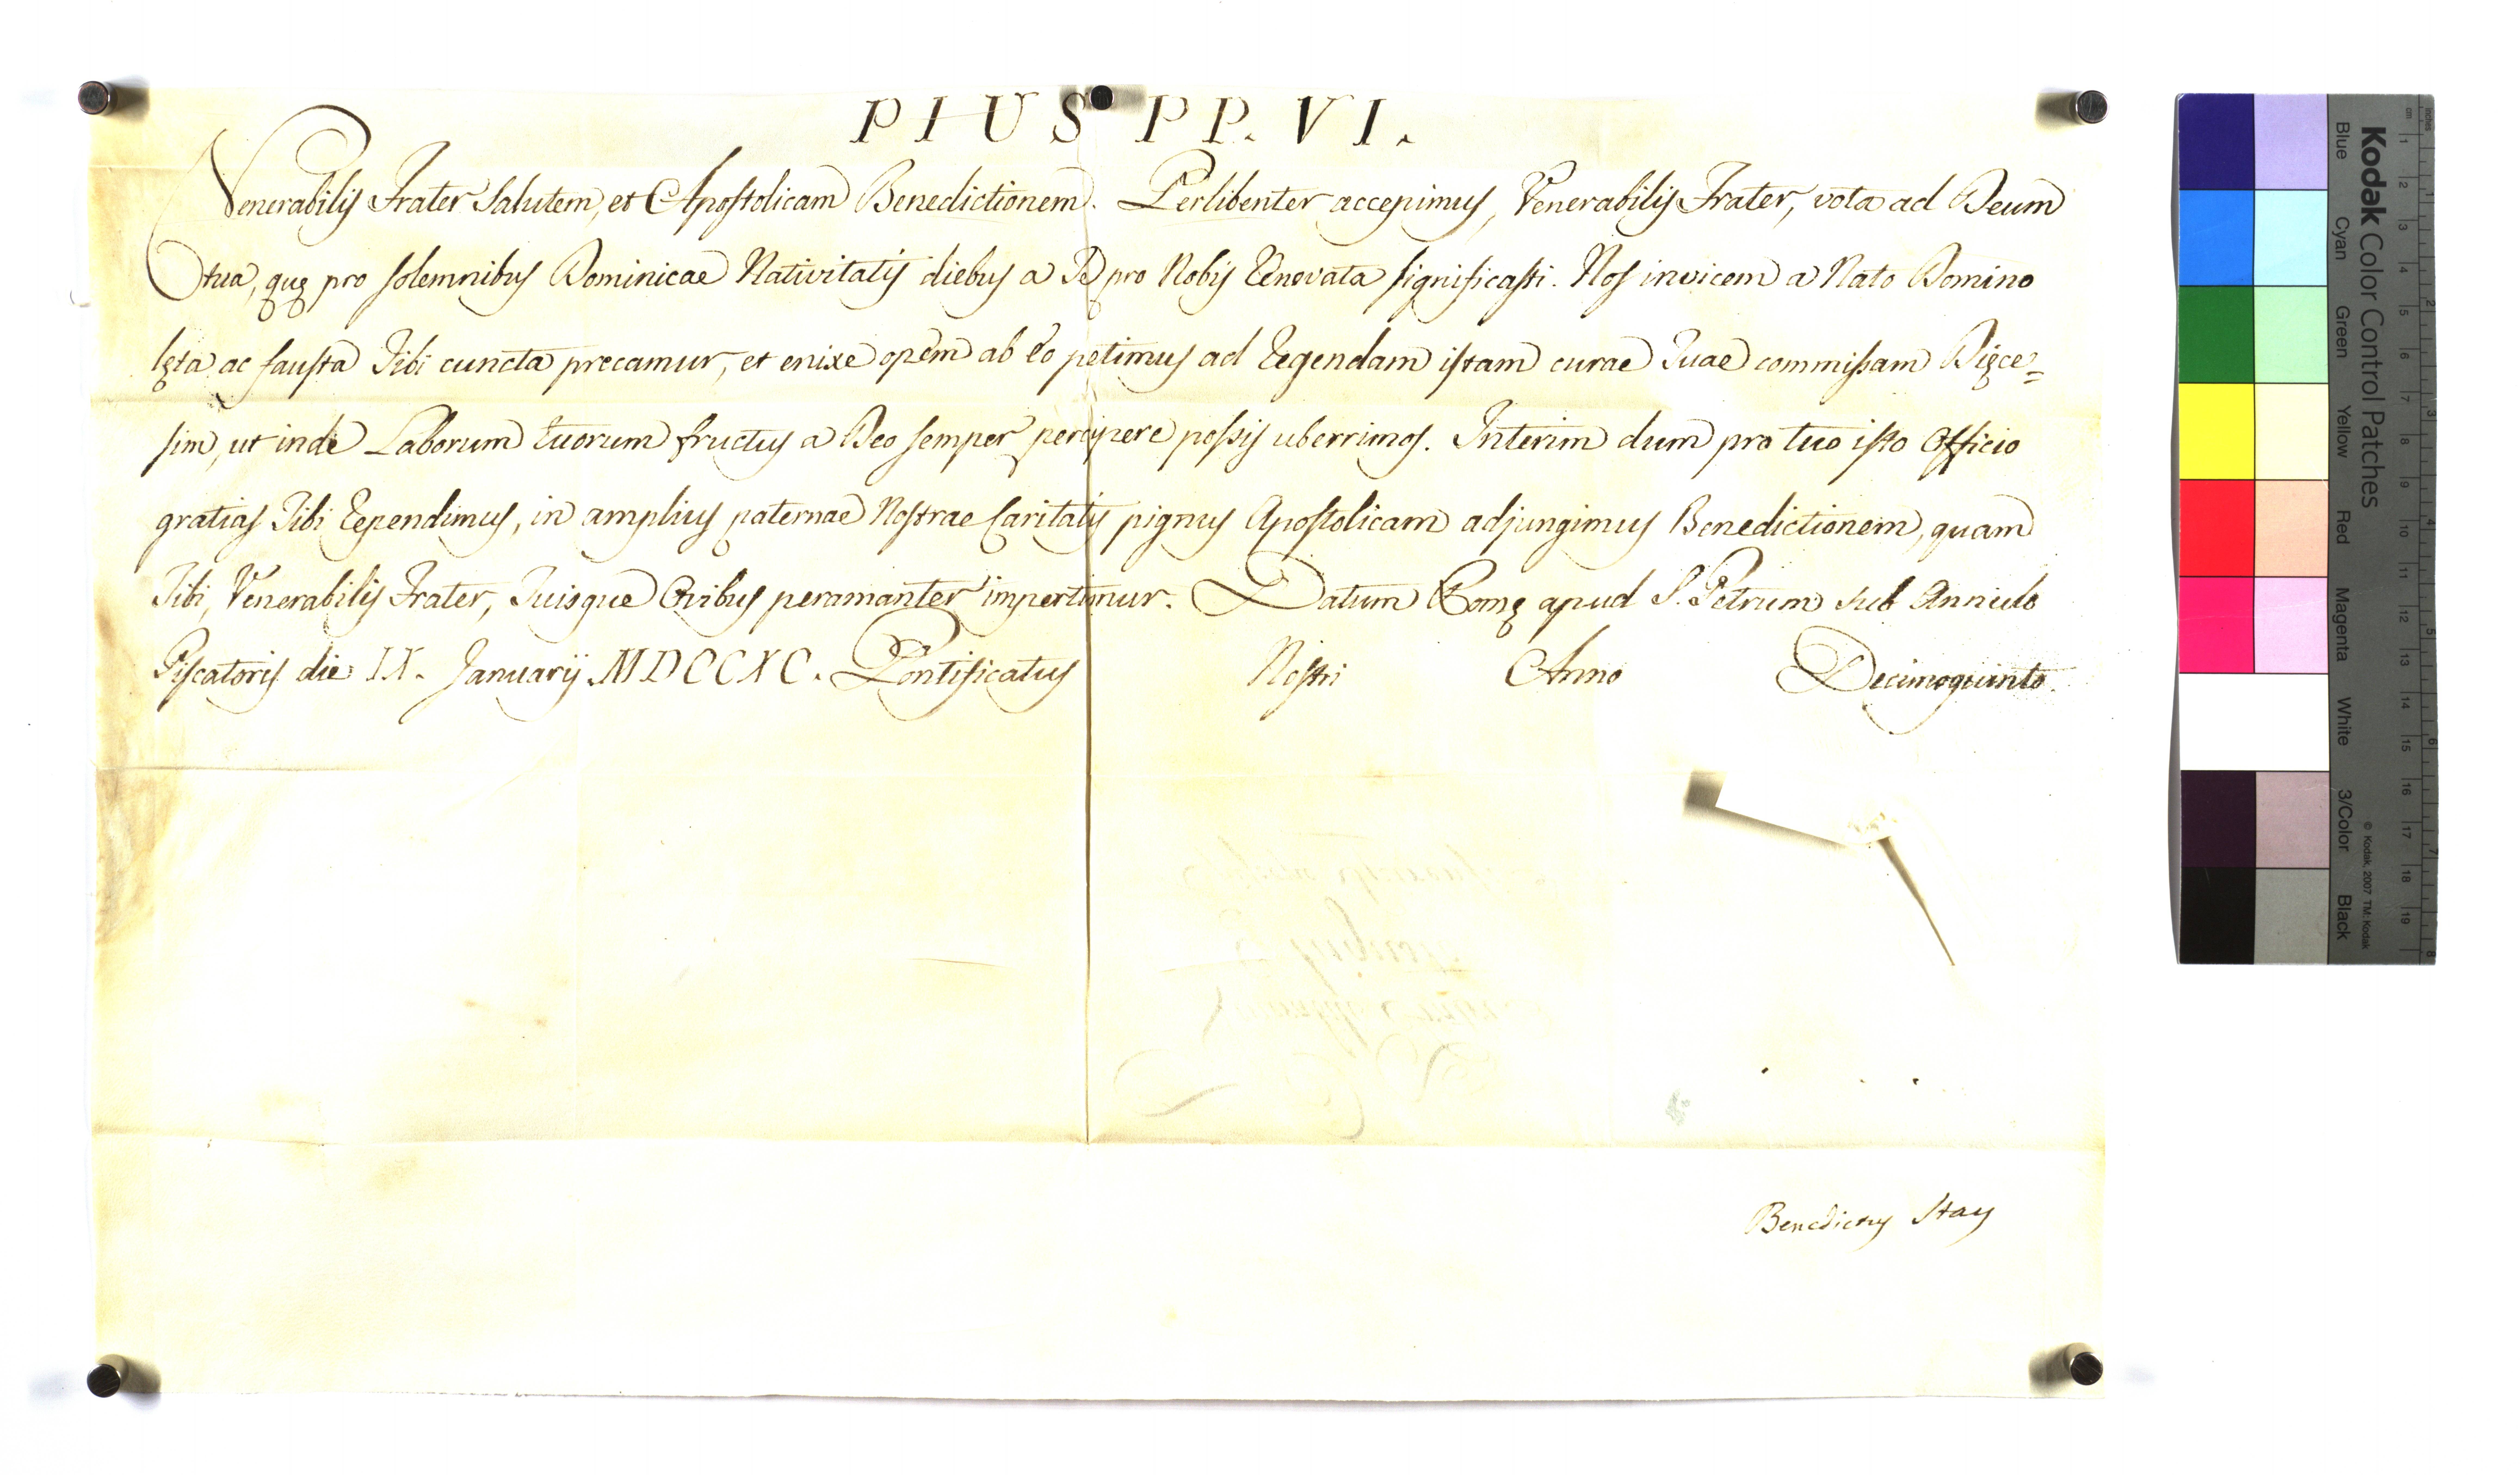 PIUS PP. VI.
Venerabilis Frater Salutem, et Apostolicam Benedictionem. Perlibenter accepimus, Venerabilis Frater, vota ad Deum
tua, quę pro solemnibus Dominicae Nativitatis diebus a Te pro Nobis Renovata significasti. Nos invicem a Nato Domino
lęta ac fausta Tibi cuncta precamur, et enixe opem ab Eo petimus ad Regendam istam curae Tuae commissam Dięce=
sim, ut inde Laborum tuorum fructus a Deo semper percipere possis uberrimos. Interim dum pro tuo isto Officio
gratias Tibi Rependimus, in amplius paternae Nostrae Caritatis pignus Apostolicam adjungimus Benedictionem, quam
Tibi, Venerabilis Frater, Tuisque Ovibus peramanter impertimur. Datum Romę apud S. Petrum sub Annulo
Piscatoris die IX. Januarij MDCCXC. Pontificatus Nostri Anno Decimoquinto.
Benedictus Stay
Kodak Color Control Patches
Blue Cyan Green Yellow Red Magenta White 3/Color Black
© Kodak, 2007 TM: Kodak
cm 1 2 3 4 5 6 7 8 9 10 11 12 13 14 15 16 17 18 19
inches 1 2 3 4 5 6 7 8